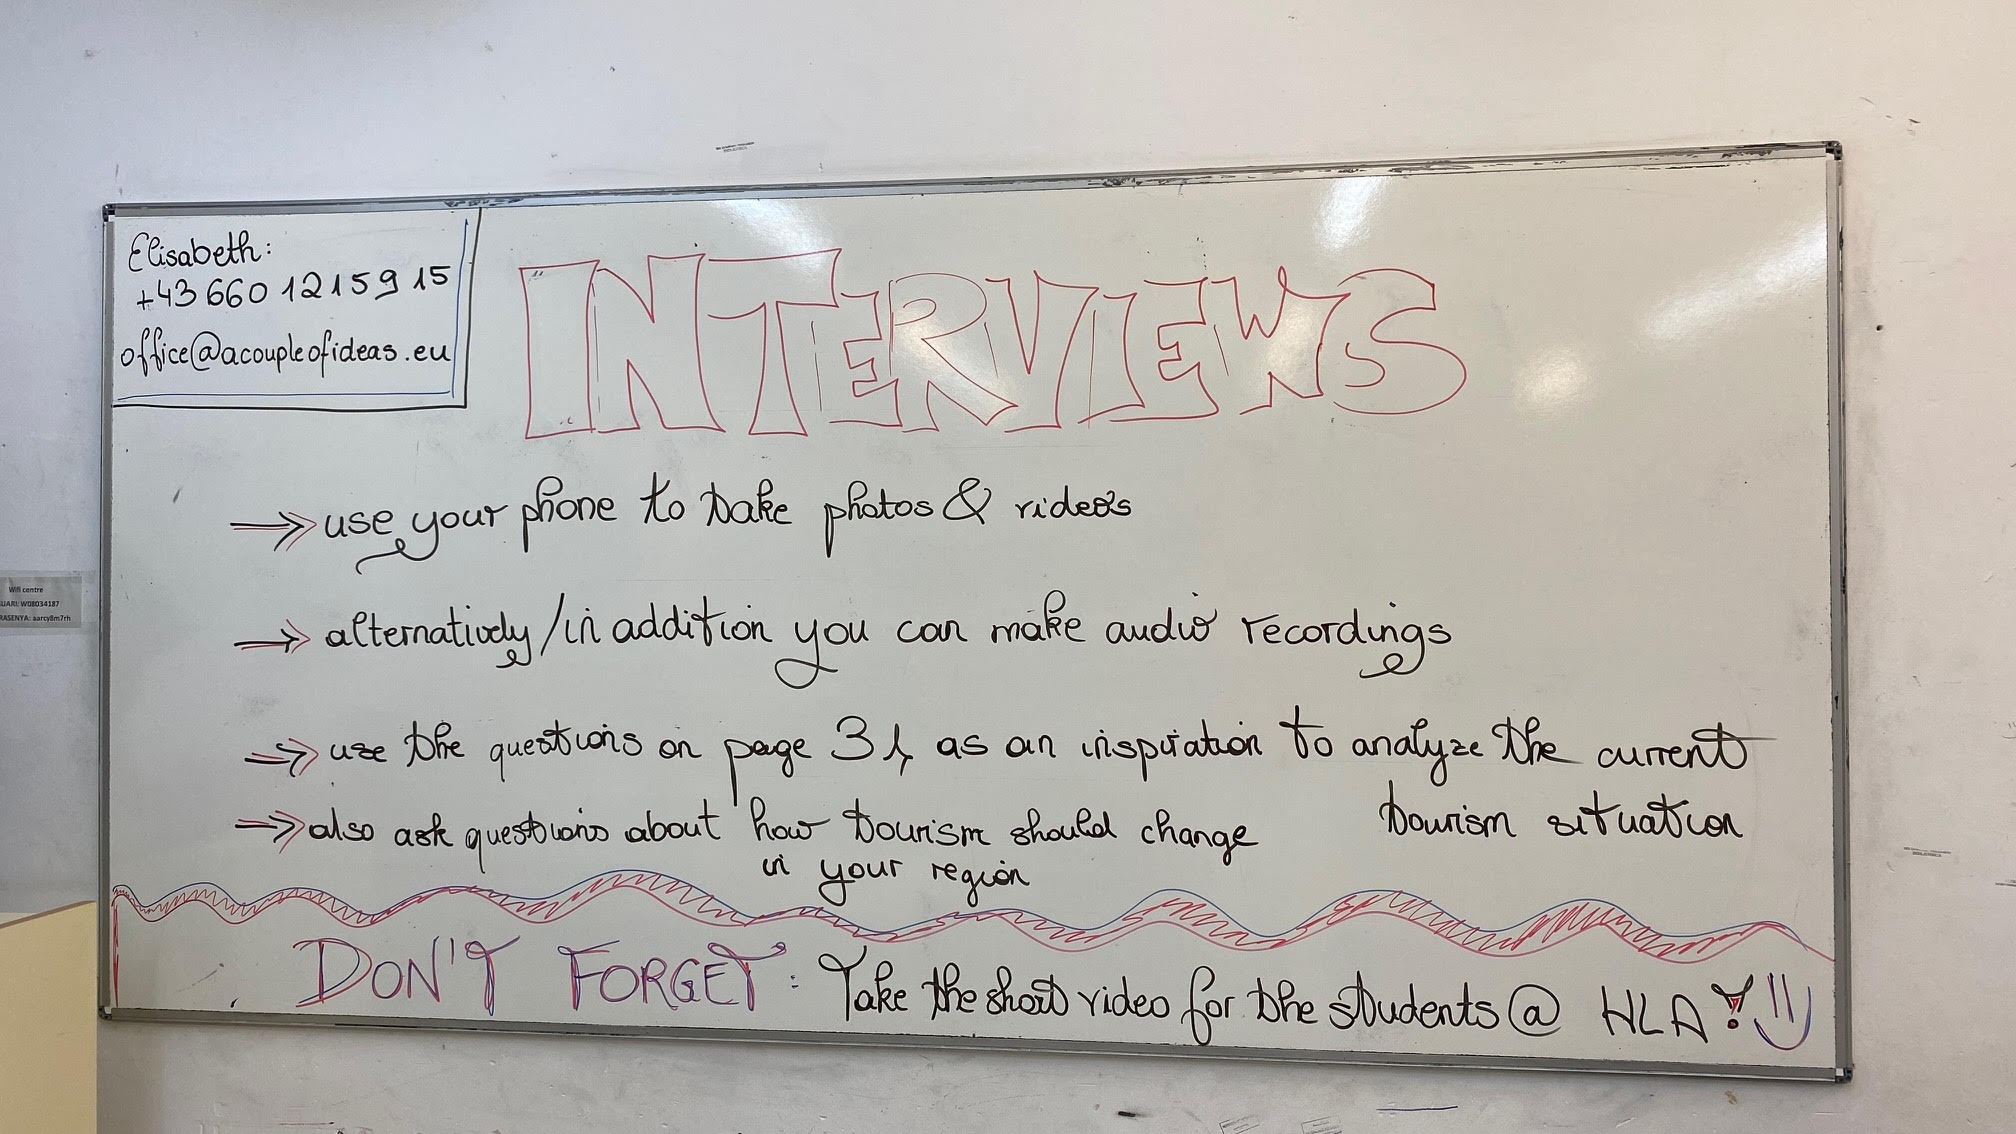 Elisabeth:
+43 660 12 15 9 15
office@acoupleofideas.eu
INTERVIEWS
⇒ use your phone to take photos & videos
⇒ alternatively/in addition you can make audio recordings
⇒ use the questions on page 3f as an inspiration to analyze the current
tourism situation
⇒ also ask questions about how tourism should change
in your region
DON'T FORGET: Take the short video for the students @ HLA! :)
Wifi centre
UARI: W08034187
RASENYA: aarcy8m7rh